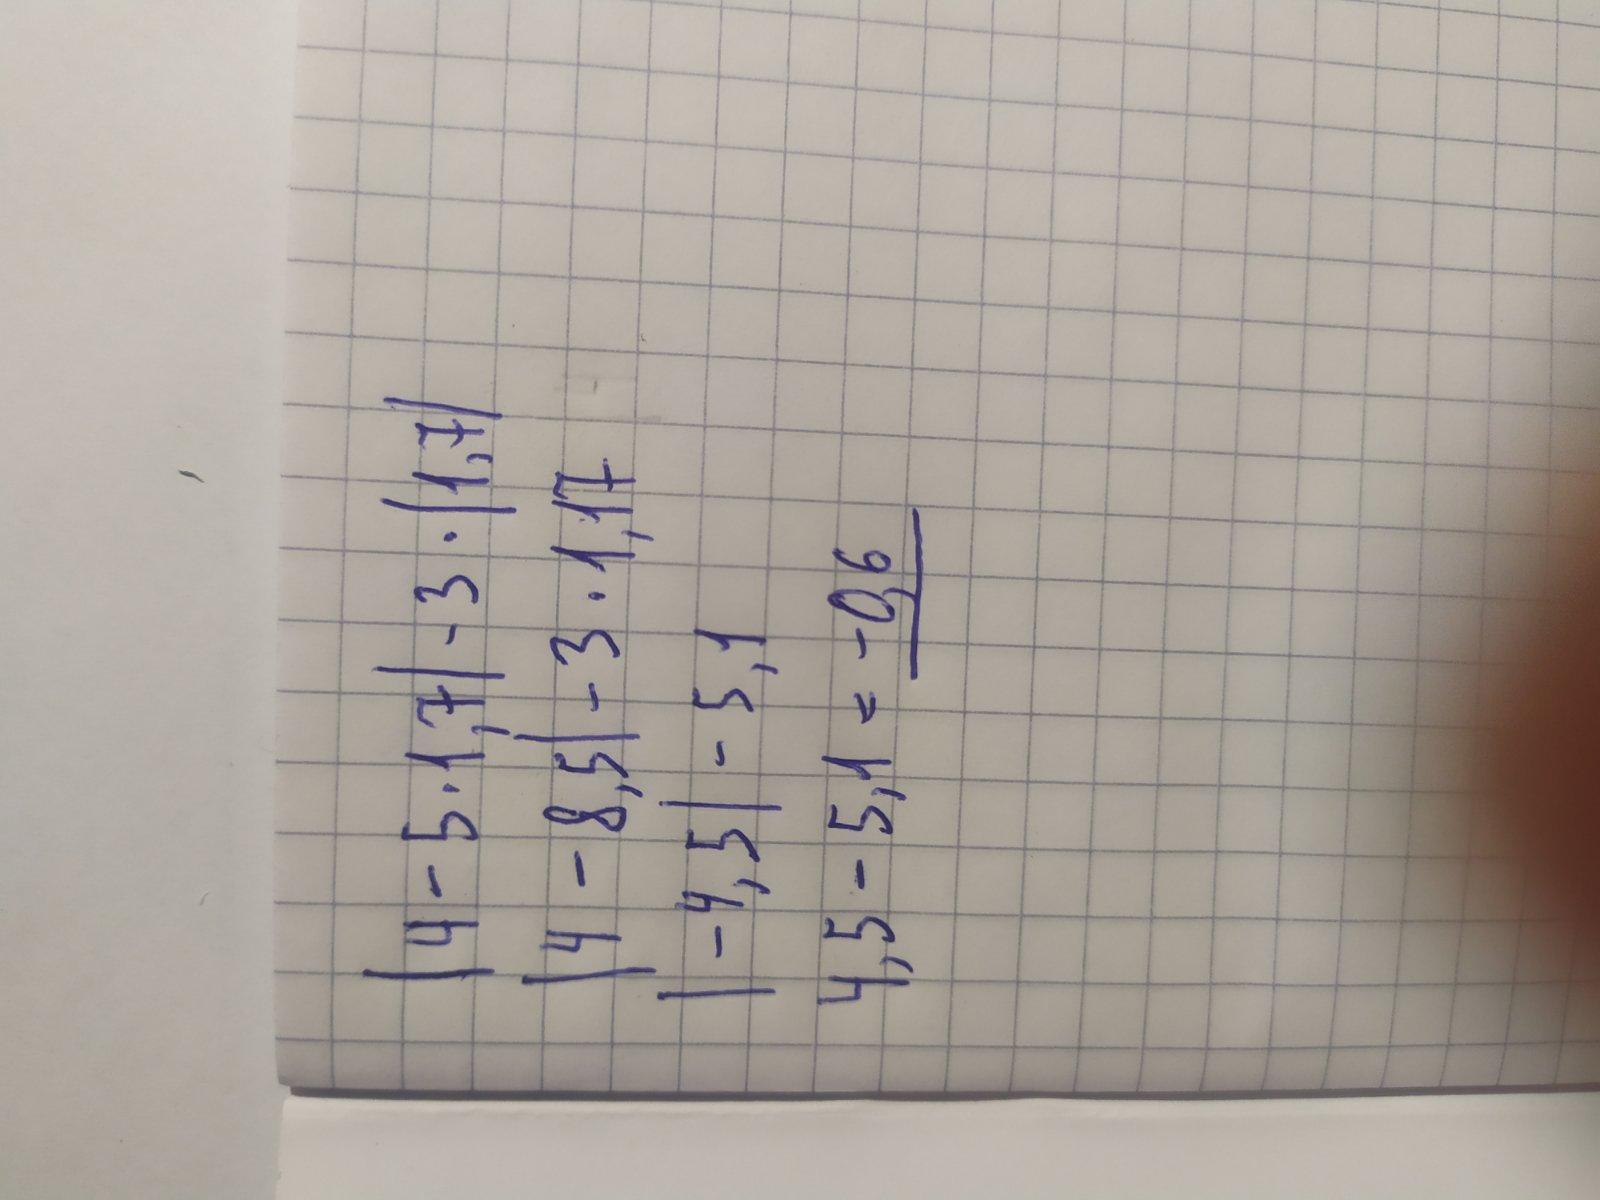 |4-5·1,7|-3·|1,7|
|4-8,5|-3·1,17
|-4,5|-5,1
4,5-5,1=-0,6